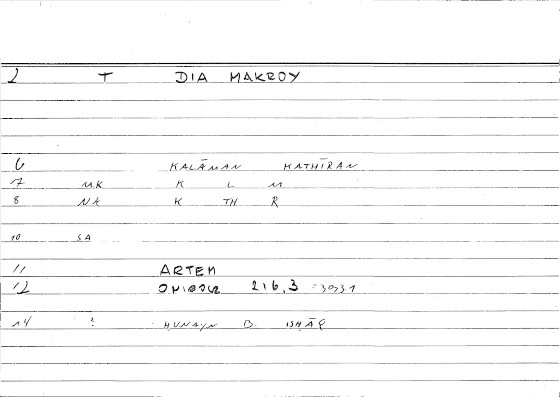 2 T DIA MAKROY
6 KALĀMAN KATHĪRAN
7 MK K L M
8 NA K TH R
10 SA
11 ARTEM
12 216,3
14 : ḤUNAYN B. ISḤĀQ